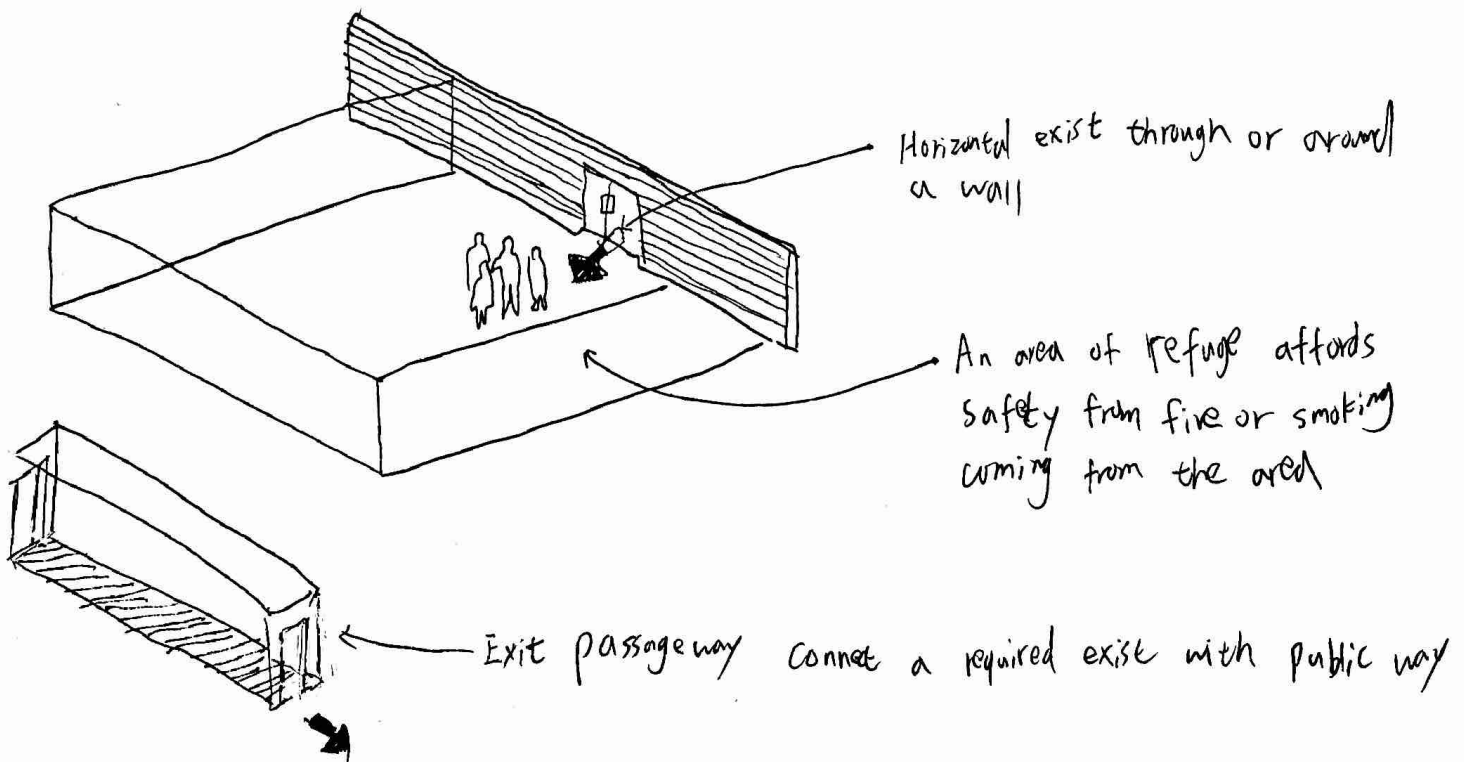 Horizontal exist through or around
a wall
An area of refuge affords
safety from fire or smoking
coming from the area
Exit passageway connet a required exist with public way